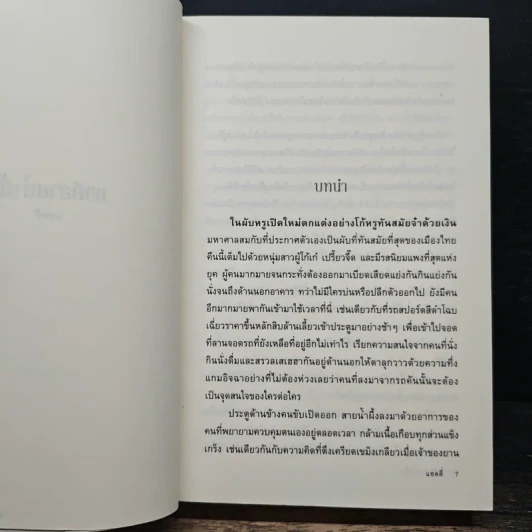 บทนำ
ในผับหรูเปิดใหม่ตกแต่งอย่างโก้หรูทันสมัยจ้าด้วยเงิน
มหาศาลสมกับที่ประกาศตัวเองเป็นผับที่ทันสมัยที่สุดของเมืองไทย
คืนนี้เต็มไปด้วยหนุ่มสาวผู้โก้เก๋ เปรี้ยวจี๊ด และมีรสนิยมแพงที่สุดแห่ง
ยุค ผู้คนมากมายจนกระทั่งต้องออกมาเบียดเสียดแย่งกันกินแย่งกัน
นั่งจนถึงด้านนอกอาคาร ทว่าไม่มีใครบ่นหรือปลีกตัวออกไป ยังมีคน
อีกมากมายพากันเข้ามาใช้เวลาที่นี่ เช่นเดียวกับที่รถสปอร์ตสีดำโฉบ
เฉี่ยวราคาขึ้นหลักสิบล้านเลี้ยวเข้าประตูมาอย่างช้าๆ เพื่อเข้าไปจอด
ที่ลานจอดรถที่ยังเหลือที่อยู่อีกไม่เท่าไร เรียกความสนใจจากคนที่นั่ง
กินนั่งดื่มและสรวลเสเฮฮากันอยู่ด้านนอกให้ตาลุกวาวด้วยความทึ่ง
แกมอิจฉาอย่างที่ไม่ต้องห่วงเลยว่าคนที่ลงมาจากรถคันนั้นจะต้อง
เป็นจุดสนใจของใครต่อใคร
ประตูด้านข้างคนขับเปิดออก สายน้ำผึ้งลงมาด้วยอาการของ
คนที่พยายามควบคุมตนเองอยู่ตลอดเวลา กล้ามเนื้อเกือบทุกส่วนแข็ง
เกร็ง เช่นเดียวกันกับความคิดที่ตึงเครียดเขม็งเกลียวเมื่อเจ้าของยาน
แอลลี่ 7